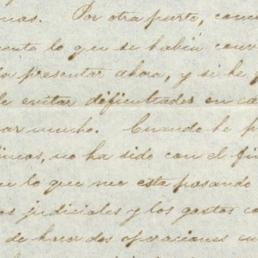 mas. Por otra parte, como
ento lo que se había conv
presentar ahora, y si he p
e evitar dificultades en ca
ar mucho. Cuando he p
inas, no ha sido con el fin
n lo que me está pasando
os judiciales y los gastos co
de hacer dos operaciones en